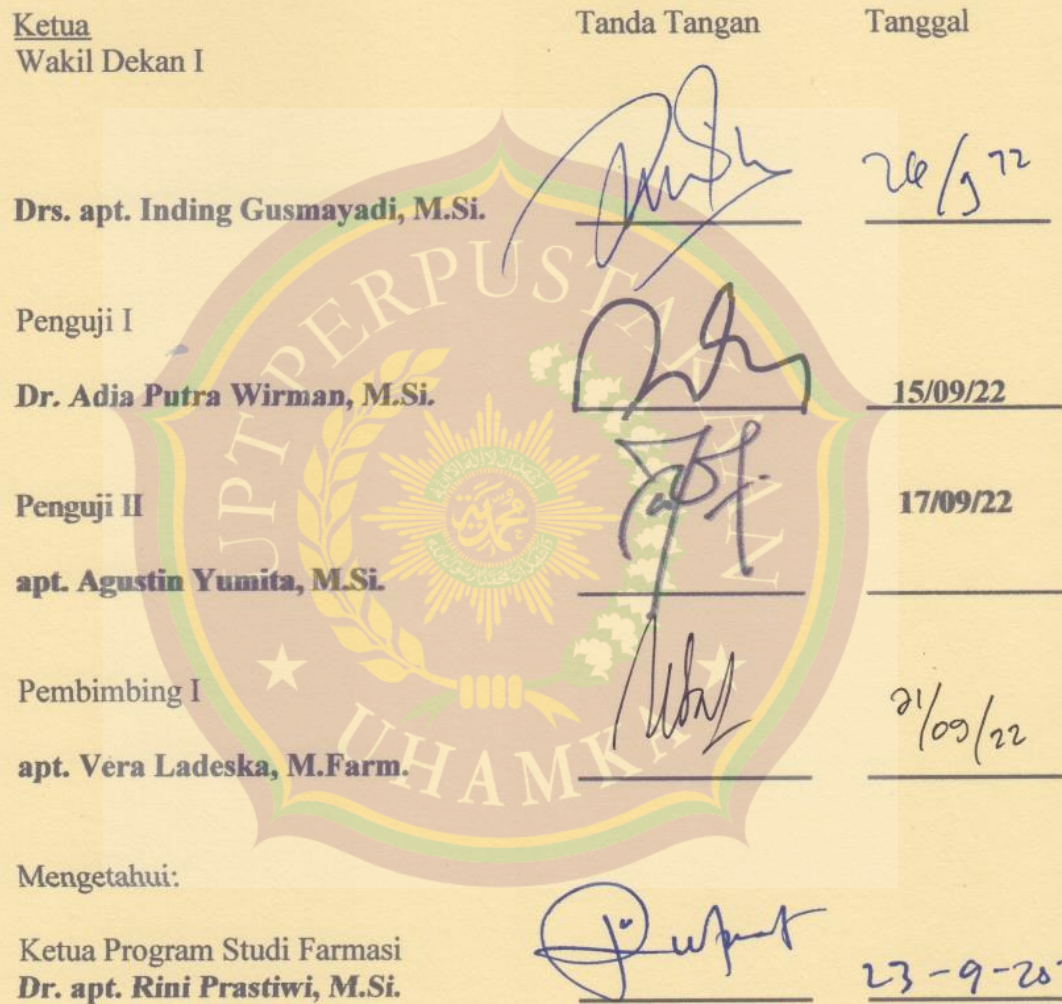 Ketua Tanda Tangan Tanggal
Wakil Dekan I
Drs. apt. Inding Gusmayadi, M.Si.
Penguji I
Dr. Adia Putra Wirman, M.Si. 15/09/22
Penguji II 17/09/22
apt. Agustin Yumita, M.Si.
Pembimbing I
apt. Vera Ladeska, M.Farm. 21/09/22
Mengetahui:
Ketua Program Studi Farmasi
Dr. apt. Rini Prastiwi, M.Si. 23-9-20
UPT PERPUSTAKAAN
UHAMKA